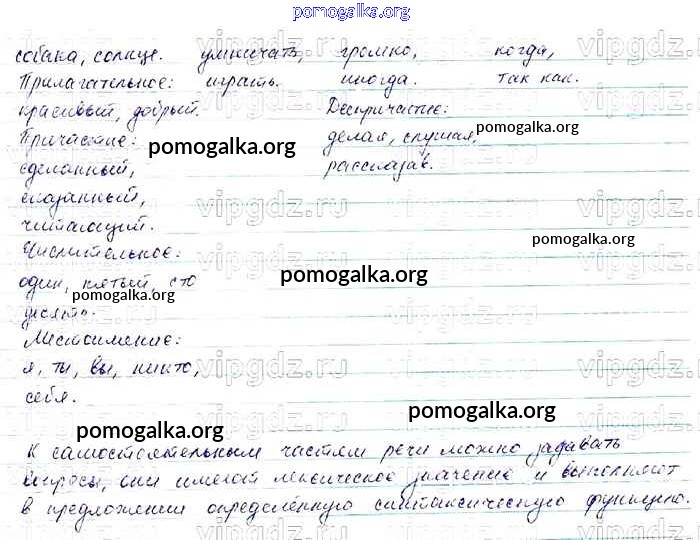 pomogalka.org
собака, солнце. умничать, громко, когда,
Прилагательное: играть. иногда. так как.
красивый, добрый. Деепричастие:
Причастие: делая, слушая,
сделанный, рассказав.
сказанный,
читающий.
Числительное:
один, пятый, сто
десять.
Местоимение:
я, ты, вы, никто,
себя.
К самостоятельным частям речи можно задавать
вопросы, они имеют лексическое значение и выполняют
в предложении определённую синтаксическую функцию.
pomogalka.org
pomogalka.org
pomogalka.org
pomogalka.org
pomogalka.org
pomogalka.org
pomogalka.org
vipgdz.ru
vipgdz.ru
vipgdz.ru
vipgdz.ru